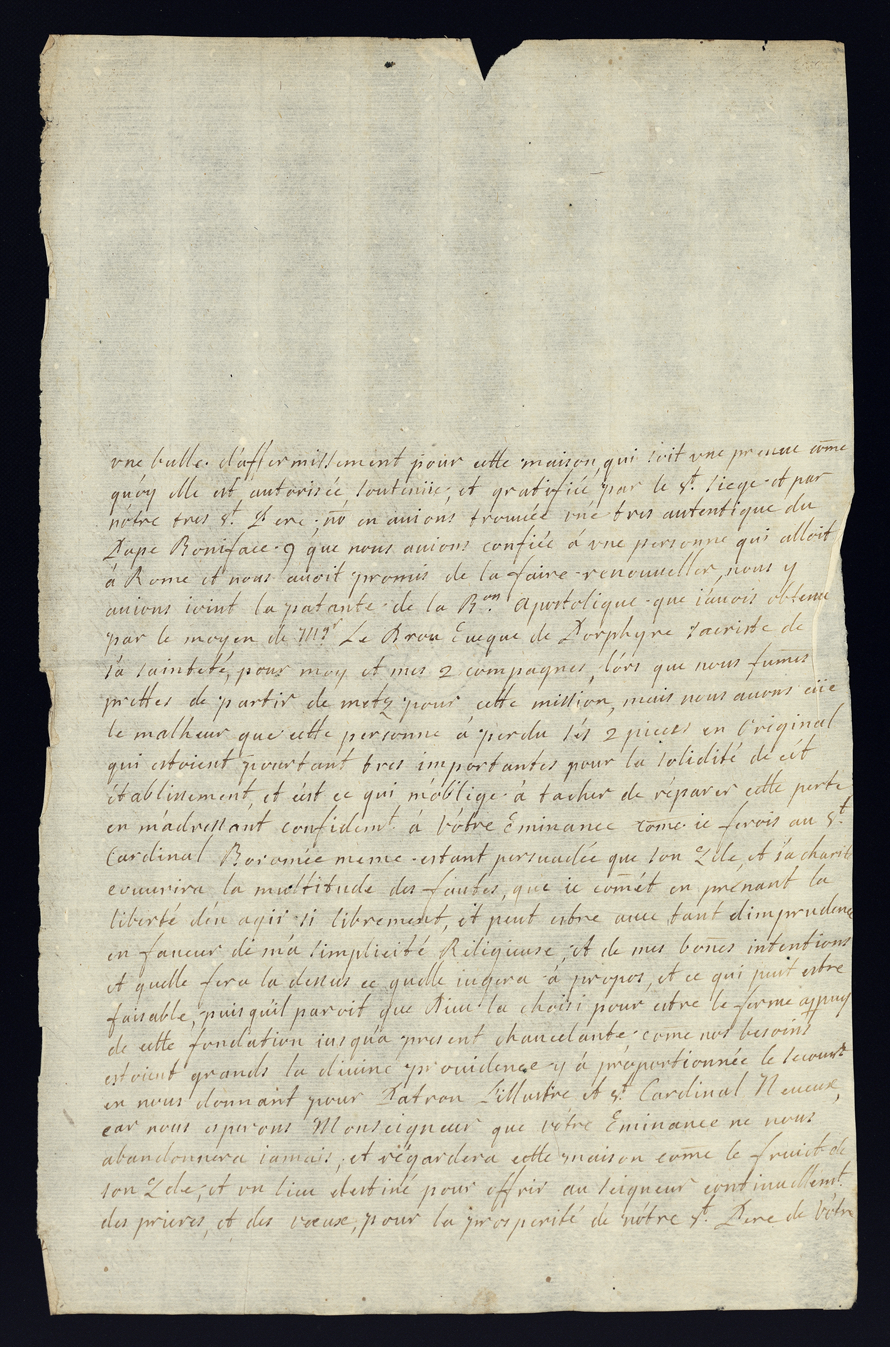 vne bulle d'affermissement pour cette maison, qui soit vne preuue cōme
quoy elle est, autorisée, soutenüe, et gratifiée par le st. siege et par
nôtre tres st. Pere; nō en auions trouuée vne tres autentique du
Pape Boniface 9 que nous auions confiée á vne personne qui alloit
á Rome et nous auoit promis de la faire renouueller, nous y
auions ioint la patante de la Bon. apostolique que i'auois obtenu
par le moyen de Mgr Le Drou Eueque de Porphyre sacriste de
sa sainteté, pour moy et mes 2 compagnes, lors que nous fumes
prettes de partir de metz pour cette mission, mais nous auons eüe
le malheur que cette personne á perdu sés 2 pieces en Original
qui estoient pourtant tres importantes pour la solidité de cét
établissement, et cést ce qui m'oblige á tacher de réparer cette perte
en m'adressant confidemt á Vôtre Eminance cōme ie ferois au st.
Cardinal Boromée meme estant persuadée que son Zéle, et sa charité
couurira la multitude des fautes, que ie comét en prenant la
liberté d'en agir si librement, et peut estre auec tant d'imprudence
en faueur de ma simplicité Religieuse, et de mes bones intentions
et quelle fera la dessus ce quelle iugera á propos, et ce qui peut estre
faisable, puis qu'il paroit que Dieu la choisi pour estre le ferme appuy
de cette fondation iusqu'a present chancelante come nos besoins
estoient grands la diuine prouidence y á proportionnée le secours
en nous donnant pour Patron L'illustre et st. Cardinal Neueux,
car nous esperons Monseigneur que vôtre Eminance ne nous
abandonnera iamais, et régardera cette maison come le fruict de
son Zéle, et vn lieu destiné pour offrir au seigneur continuellemt.
des prieres, et des voeux, pour la prosperité de nôtre st. Pere de Vôtre